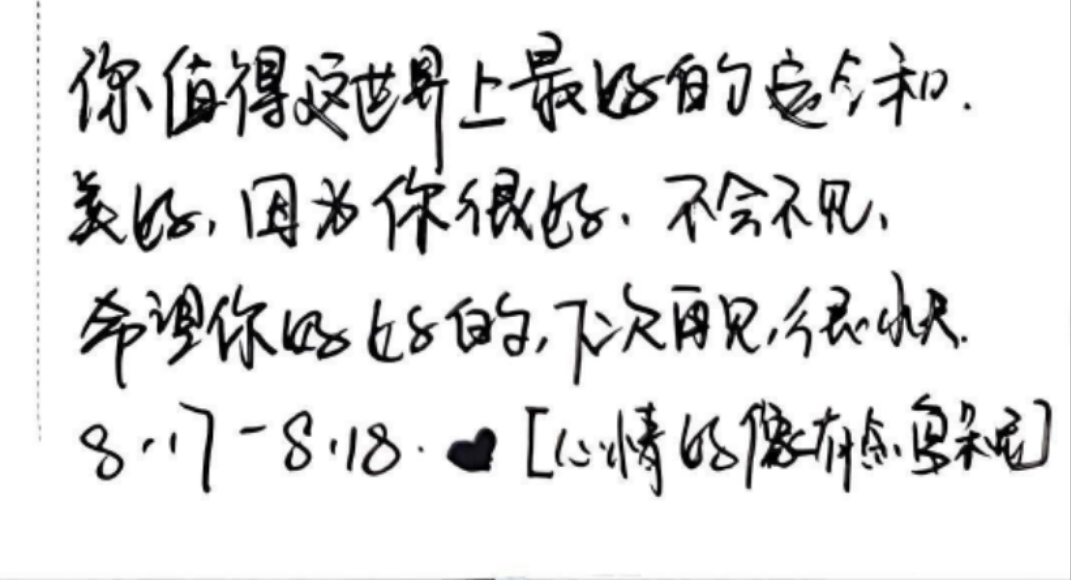 你值得这世界上最好的 和.
美好,因为你很好.不会不见,
希望你好好的,下次再见,很快.
8.17-8.18.♥[心情好像有 呢]